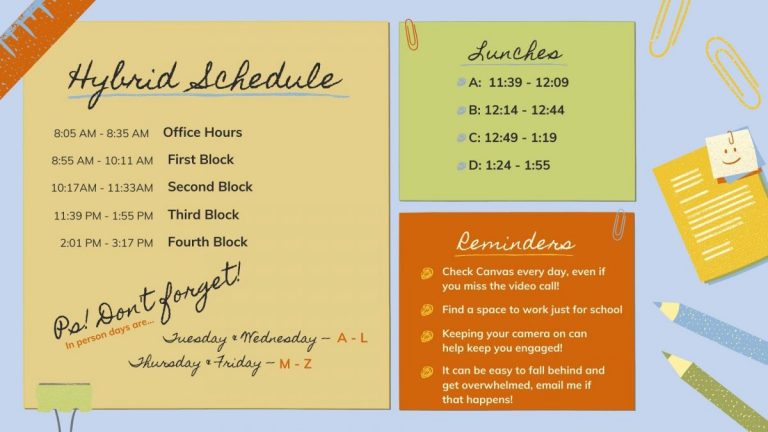 Hybrid Schedule
8:05 AM - 8:35 AM Office Hours
8:55 AM - 10:11 AM First Block
10:17AM - 11:33AM Second Block
11:39 PM - 1:55 PM Third Block
2:01 PM - 3:17 PM Fourth Block
Ps! Don't forget!
In person days are...
Tuesday & Wednesday - A - L
Thursday & Friday - M - Z
Lunches
A: 11:39 - 12:09
B: 12:14 - 12:44
C: 12:49 - 1:19
D: 1:24 - 1:55
Reminders
Check Canvas every day, even if
you miss the video call!
Find a space to work just for school
Keeping your camera on can
help keep you engaged!
It can be easy to fall behind and
get overwhelmed, email me if
that happens!